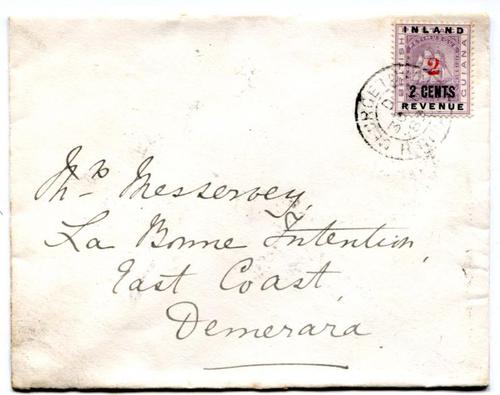 INLAND
BRITISH
GUIANA
2
2 CENTS
REVENUE
GEORGET
Messervey,
La Bonne Intention,
East Coast,
Demerara